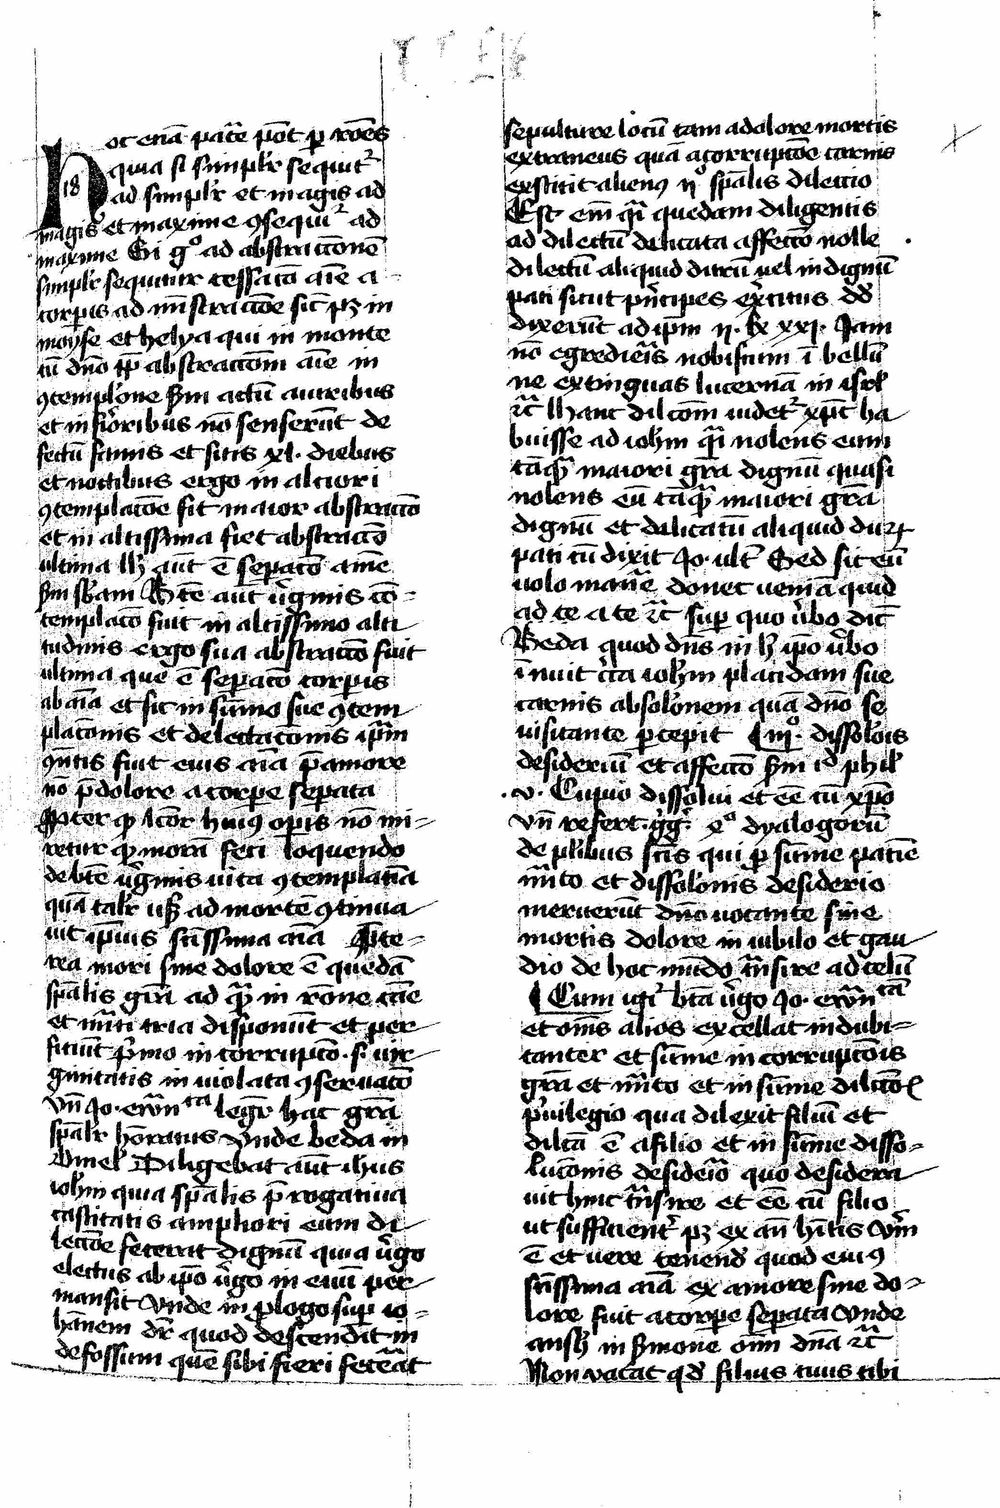 18
Hoc etiā pat̄e pōt p̲ rōēs
quia si simplr̄ sequit᷑
ad simplr̄ et magis ad
magis et maxime ꝯsequi᷑ ad
maxime Si gͦ ad abstraccōnē
simplr̄ sequitur cessacō aīe a
corpis ad mīstracōe sic̄ pꝫ in
moyse et helya qui in monte
cū dn̄o ip̄ abstraccōm aīe in
ꝯtemplōne s̄m actū auribus
et inferioribus nō senserūt de
fectū famis et sitis xl· diebus
et noctibus ergo in alciori
ꝯtemplacōe fit maior abstraccō
et in altissima fiet abstraccō
ultima hͦ aūt ē sepacō aīe
s̄m sb̄am Btē aut v̄ginis cō⸗
templacō fuit in altissimo alti
tudinis ergo sua abstraccō fuit
ultima que ē sepacō corpis
ab aīa et sic in sūmo sue ꝯtem
placōnis et delectacōnis ip̄m
fuit eius aīa p̄ amore
nō p̄ dolore a corpe sepata
Ppter qͩ lc̄or huiꝰ opis nō mi⸗
retur qͩ morā feci loquendo
de btē v̄ginis vita ꝯtemplatīa
quā talr̄ usqꝫ ad mortē ꝯtinua
uit ip̄ius sc̄issima aīa Pte⸗
rea mori sine dolore ē quedā
sp̄alis grā ad quā in rōne cāe
et mīti tria disponūt et per
ficiūt p̄mo in corrupcō·s· vir
ginitatis inviolata ꝯservacō
vn̄ Jo·ewāⁿᵗᵃ legr̄ hac grā
sp̄alr̄ honoratus vnde beda in
Omel̄ Diligebat aūt ihus
ioh̄m quia sp̄alis p̄rogativa
castitatis ampliori eum di
leccōe fecerat dignū quia v̄go
electus ab ip̄o v̄go in evū per
mansit vnde in plogo sup io⸗
hānem dr̄ quod descendit in
defossum quē sibi fieri fecerat
sepulture locū tam a dolore mortis
extraneus quā a corrupcōe carnis
exstitit alienꝰ ijͦ sp̄alis dileccio
Est em̄ qi quedam diligentis
ad dilectū delicata affeccō nolle
dilectū aliquid dirū uel indignū
pati sicut p̄ncipes ex̄citus dd
dixerūt ad ip̄m ij· xxi· Jam
nō egredieris nobiscum ī bellū
ne extinguas lucernā in isrl̄
⁊c̄ hanc dilcōm videt᷑ xp̄c ha
buisse ad ioh̄m qi nolens eum
tāqͣ maiori grā dignū quasi
nolens eū tāqͣ maiori grā
dignū et delicatū aliquid durꝝ
pati cū dixit Jo·ult̄ Sed sic eū
volo mane donec veniā quid
ad te a te ⁊c̄ sup quo v̄bo dic̄
Beda quod dn̄s in hͦ ip̄o v̄bo
īnuit c̄ca ioh̄m placidam sue
carnis absolōnem quā dn̄o se
visitante p̲cepit iijͦ· dissolōis
desideriū et affeccō s̄m id phil̄
·v· Cupio dissolui et eē cū xp̄o
vn̄ refert gͥgͥ· dyalogorū
de plibus sc̄is qui p̲ sūme patiē
mīto et dissolōnis desiderio
meruerūt dn̄o vocante sine
mortis dolore in iubilo et gau
dio de hoc mūdo tn̄sire ad celū
Cum igi᷑ btā v̄go Jo·ewāⁿᵗᵃ
et om̄s alios excellat indubi⸗
tanter et sūme in corrupcōis
grā et mīto et in sūme dilccōis
p̄uilegio qua dilexit filiū et
dilcā ē a filio et in sūme disso⸗
lucōnis desideiō quo desidera
uit hinc tn̄sire et eē cū filio
ut sufficient᷑ pꝫ ex an̄ hītis vm̄
ē et vere tenend quod eiꝰ
sc̄issima aīā ex amore sine do⸗
lore fuit a corpe sepata vnde
ansꝫ in s̄mone om̄ dn̄a ⁊c̄
Non vacat qd filius tuus tibi